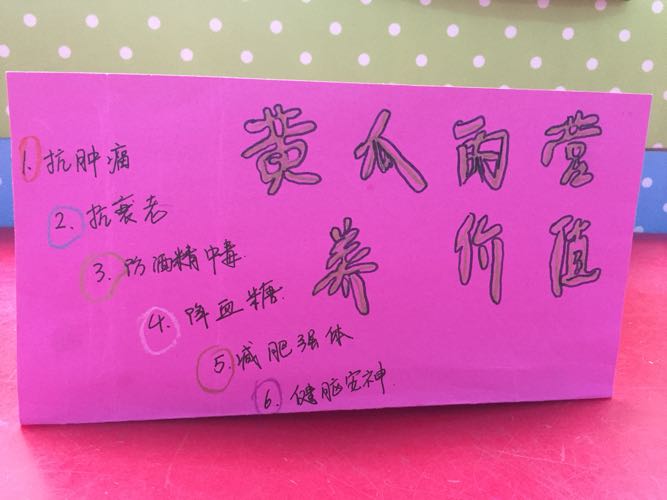 黄瓜的营
养价值
1. 抗肿瘤
2. 抗衰老
3. 防酒精中毒.
4. 降血糖.
5. 减肥强体
6. 健脑安神.